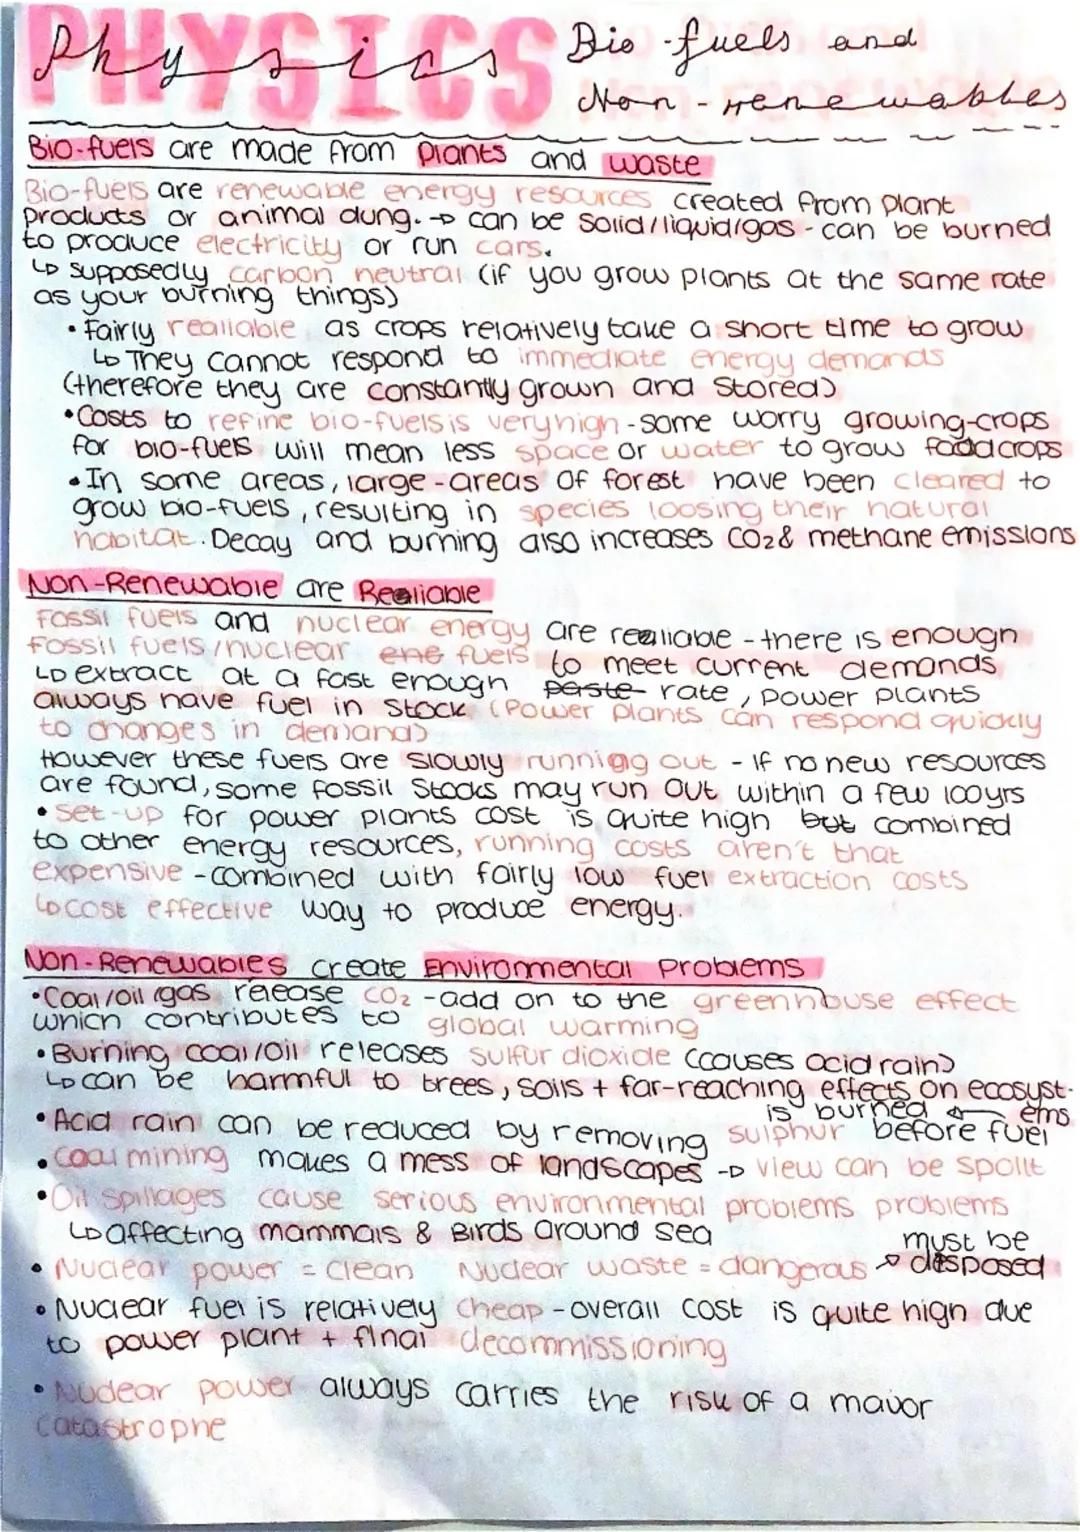 Physics Bio-fuels and
Non-renewables
Bio-fuels are made from plants and waste
Bio-fuels are renewable energy resources created from plant
products or animal dung. → can be solid/liquid/gas - can be burned
to produce electricity or run cars.
↳ supposedly carbon neutral (if you grow plants at the same rate
as your burning things)
• fairly realiable as crops relatively take a short time to grow
↳ They cannot respond to immediate energy demands
(therefore they are constantly grown and stored)
• Costs to refine bio-fuels is very high - some worry growing-crops
for bio-fuels will mean less space or water to grow food crops
• In some areas, large-areas of forest have been cleared to
grow bio-fuels, resulting in species loosing their natural
habitat. Decay and burning also increases CO2 & methane emissions
Non-Renewable are Realiable
Fossil fuels and nuclear energy are realiable - there is enough
fossil fuels/nuclear ene fuels to meet current demands
↳ extract at a fast enough paste rate, power plants
always have fuel in stock (Power plants can respond quickly
to changes in demand)
However these fuels are slowly running out - If no new resources
are found, some fossil stocks may run out within a few 100yrs
• Set-up for power plants cost is quite high but combined
to other energy resources, running costs aren't that
expensive - combined with fairly low fuel extraction costs
↳ cost effective way to produce energy.
Non-Renewables create Environmental Problems
• Coal/oil/gas release CO2 - add on to the greenhouse effect
which contributes to global warming
• Burning coal/oil releases sulfur dioxide (causes acid rain)
↳ can be harmful to trees, soils + far-reaching effects on ecosyst-
ems
• Acid rain can be reduced by removing sulphur before fuel
is burned
• Coal mining makes a mess of landscapes → view can be spoilt
• Oil spillages cause serious environmental problems problems
↳ affecting mammals & Birds around sea
• Nuclear power = clean Nuclear waste = dangerous → must be
disposed
• Nuclear fuel is relatively cheap - overall cost is quite high due
to power plant + final decommissioning
• Nuclear power always carries the risk of a mavor
catastrophe